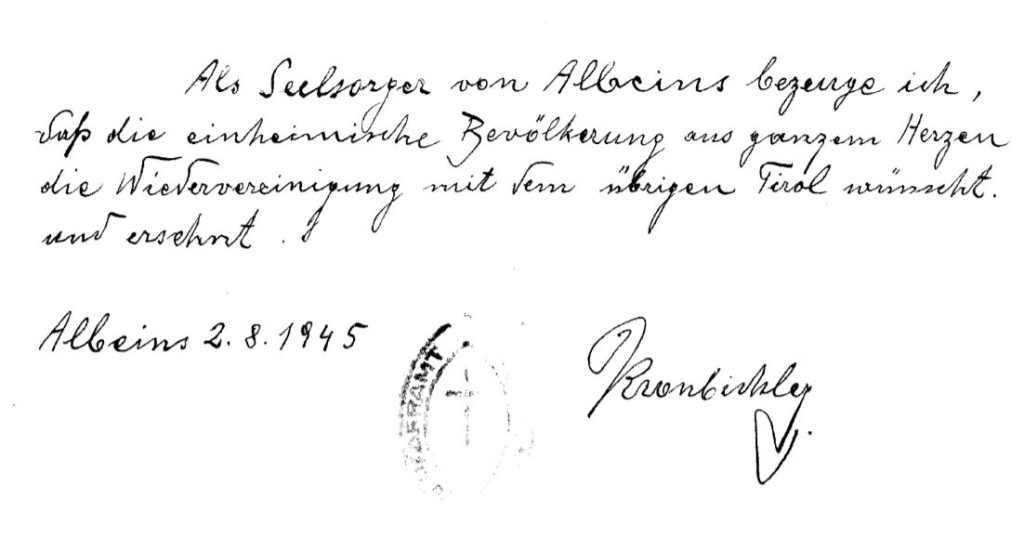 Als Seelsorger von Albeins bezeuge ich,
daß die einheimische Bevölkerung aus ganzem Herzen
die Wiedervereinigung mit dem übrigen Tirol wünscht.
und ersehnt.
Albeins 2.8.1945
PFARRAMT
Kronbichler